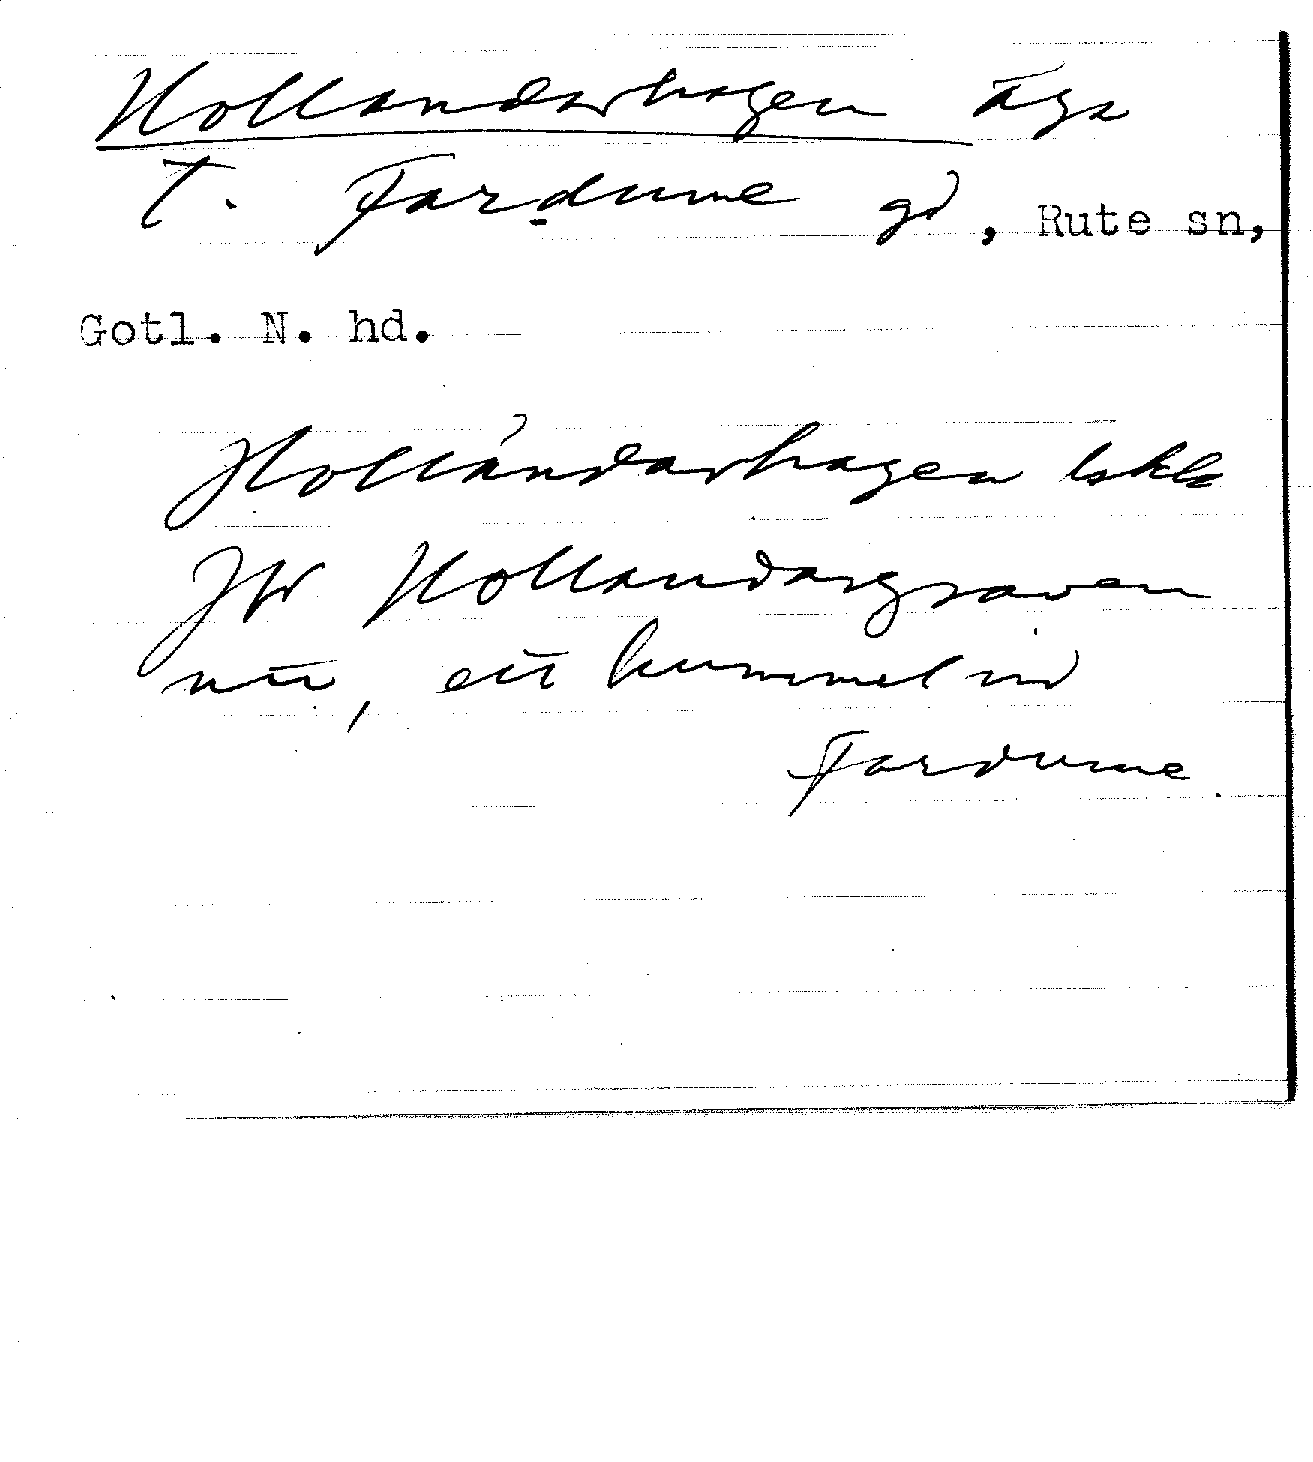 Hollandarhagen äga
t. Fardume gd, Rute sn,
Gotl. N. hd.
Hollándarhagen lskb
Jfr Hollandargraven
nu, ett hummel vid
Fardume